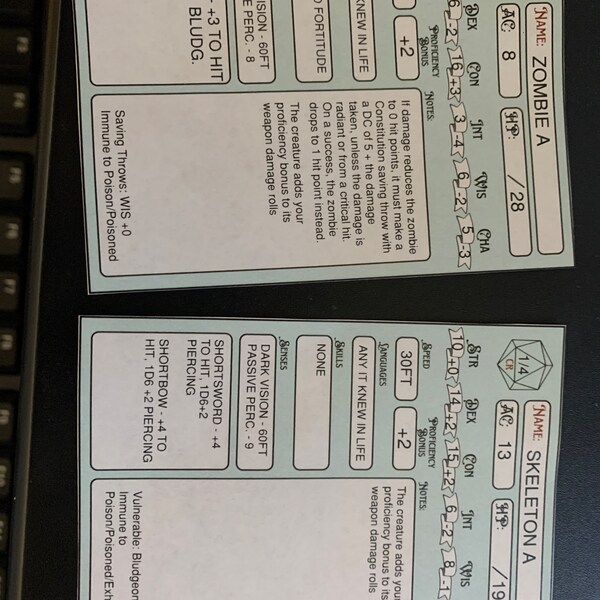 NAME: ZOMBIE A
AC: 8
HP: /28
DEX CON INT WIS CHA
6 -2 16 +3 3 -4 6 -2 5 -3
+2
PROFICIENCY
BONUS
KNEW IN LIFE
FORTITUDE
VISION - 60FT
PERC. - 8
- +3 TO HIT
BLUDG.
NOTES:
If damage reduces the zombie
to 0 hit points, it must make a
Constitution saving throw with
a DC of 5 + the damage
taken, unless the damage is
radiant or from a critical hit.
On a success, the zombie
drops to 1 hit point instead.
The creature adds your
proficiency bonus to its
weapon damage rolls
Saving Throws: WIS +0
Immune to Poison/Poisoned
1/4
CR
NAME: SKELETON A
AC: 13
HP: /19
STR DEX CON INT WIS
10 +0 14 +2 15 +2 6 -2 8 -1
30FT
SPEED
+2
PROFICIENCY
BONUS
ANY IT KNEW IN LIFE
LANGUAGES
NONE
SKILLS
DARK VISION - 60FT
PASSIVE PERC. - 9
SENSES
SHORTSWORD - +4
TO HIT, 1D6+2
PIERCING
SHORTBOW - +4 TO
HIT, 1D6 +2 PIERCING
NOTES:
The creature adds your
proficiency bonus to its
weapon damage rolls
Vulnerable: Bludgeon
Immune to
Poison/Poisoned/Exh